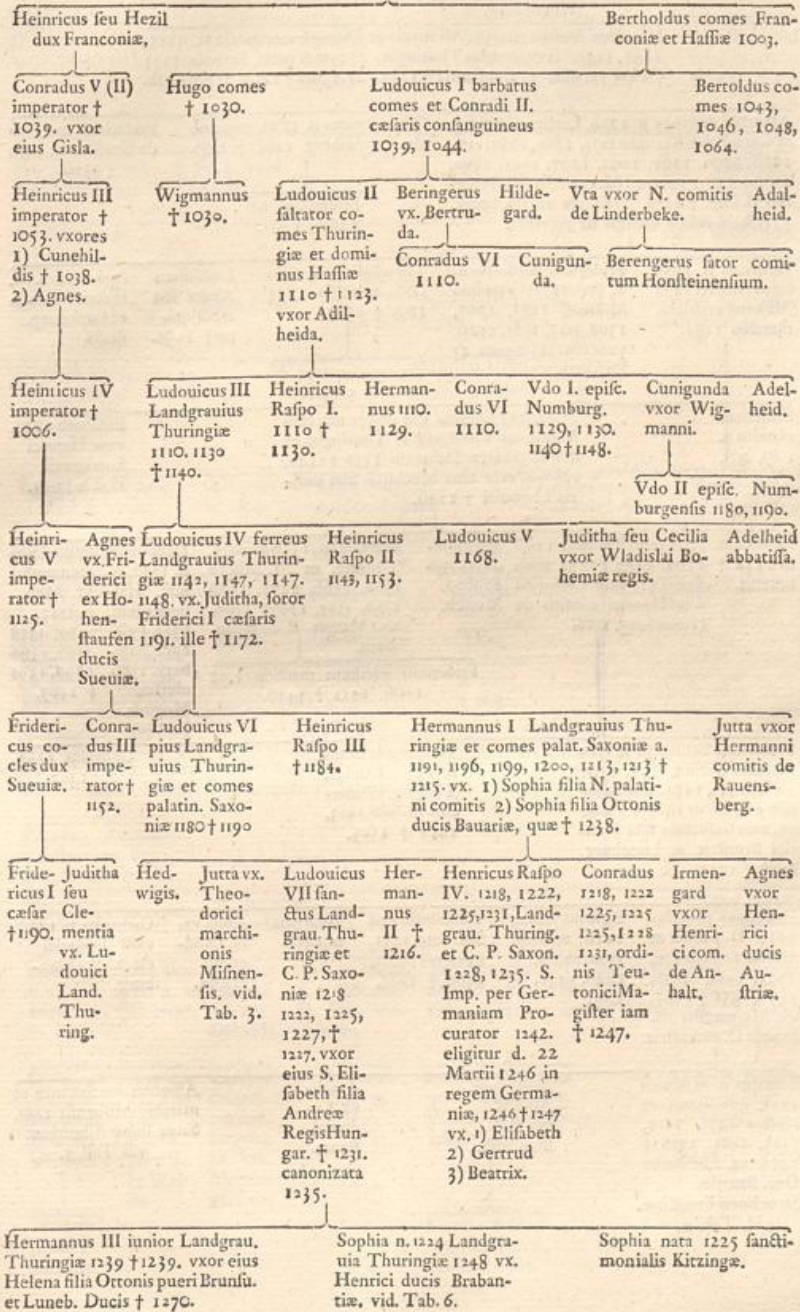 Heinricus seu Hezil
dux Franconiæ.
Bertholdus comes Fran-
coniæ et Hassiæ 1003.
Conradus V (II)
imperator †
1039. vxor
eius Gisla.
Hugo comes
† 1030.
Ludouicus I barbatus
comes et Conradi II.
cæsaris consanguineus
1039, 1044.
Bertoldus co-
mes 1043,
1046, 1048,
1064.
Heinricus III
imperator †
1053. vxores
1) Cunehil-
dis † 1038.
2) Agnes.
Wigmannus
† 1030.
Ludouicus II
saltator co-
mes Thurin-
giæ et domi-
nus Hassiæ
1110 † 1123.
vxor Adil-
heida.
Beringerus
vx. Bertru-
da.
Hilde-
gard.
Vta vxor N. comitis
de Linderbeke.
Adal-
heid.
Conradus VI
1110.
Cunigun-
da.
Berengerus sator comi-
tum Honsteinensium.
Heinricus IV
imperator †
1006.
Ludouicus III
Landgrauius
Thuringiæ
1110. 1130
† 1140.
Heinricus
Raspo I.
1110 †
1130.
Herman-
nus 1110.
1129.
Conra-
dus VI
1110.
Vdo I. episc.
Numburg.
1129, 1130.
1140 † 1148.
Cunigunda
vxor Wig-
manni.
Adel-
heid.
Vdo II episc. Num-
burgensis 1180, 1190.
Heinri-
cus V
impe-
rator †
1125.
Agnes
vx. Fri-
derici
ex Ho-
hen-
staufen
ducis
Sueuiæ.
Ludouicus IV ferreus
Landgrauius Thurin-
giæ 1142, 1147, 1147.
1148. vx. Juditha, soror
Friderici I cæsaris
1191. ille † 1172.
Heinricus
Raspo II
1143, 1153.
Ludouicus V
1168.
Juditha seu Cecilia
vxor Wladislai Bo-
hemiæ regis.
Adelheid
abbatissa.
Frideri-
cus co-
cles dux
Sueuiæ.
Conra-
dus III
impe-
rator †
1152.
Ludouicus VI
pius Landgra-
uius Thurin-
giæ et comes
palatin. Saxo-
niæ 1180 † 1190
Heinricus
Raspo III
† 1184.
Hermannus I Landgrauius Thu-
ringiæ et comes palat. Saxoniæ a.
1191, 1196, 1199, 1200, 1213, 1213 †
1215. vx. 1) Sophia filia N. palati-
ni comitis 2) Sophia filia Ottonis
ducis Bauariæ, quæ † 1238.
Jutta vxor
Hermanni
comitis de
Rauens-
berg.
Fride-
ricus I
cæsar
† 1190.
Juditha
seu
Cle-
mentia
vx. Lu-
douici
Land.
Thu-
ring.
Hed-
wigis.
Jutta vx.
Theo-
dorici
marchi-
onis
Misnen-
sis. vid.
Tab. 3.
Ludouicus
VII san-
ctus Land-
grau. Thu-
ringiæ et
C. P. Saxo-
niæ 1218
1222, 1225,
1227, †
1227. vxor
eius S. Eli-
sabeth filia
Andreæ
Regis Hun-
gar. † 1231.
canonizata
1235.
Her-
man-
nus
II †
1216.
Henricus Raspo
IV. 1218, 1222,
1225, 1231, Land-
grau. Thuring.
et C. P. Saxon.
1228, 1235. S.
Imp. per Ger-
maniam Pro-
curator 1242.
eligitur d. 22
Martii 1246 in
regem Germa-
niæ, 1246 † 1247
vx. 1) Elisabeth
2) Gertrud
3) Beatrix.
Conradus
1218, 1222
1225, 1225
1225, 1228
1231, ordi-
nis Teu-
tonici Ma-
gister iam
† 1247.
Irmen-
gard
vxor
Henri-
ci com.
de An-
halt.
Agnes
vxor
Hen-
rici
ducis
Au-
striæ.
Hermannus III iunior Landgrau.
Thuringiæ 1239 † 1239. vxor eius
Helena filia Ottonis pueri Brunsu.
et Luneb. Ducis † 1270.
Sophia n. 1224 Landgra-
uia Thuringiæ 1248 vx.
Henrici ducis Braban-
tiæ. vid. Tab. 6.
Sophia nata 1225 sancti-
monialis Kitzingæ.